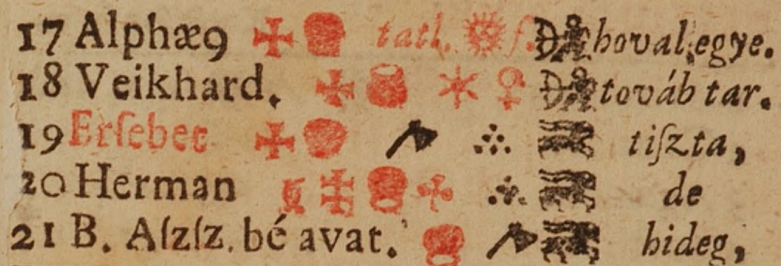 17 Alphæ9 tatl. ſ. hoval, egye.
18 Veikhard. továb tar.
19 Erſebet tiſzta,
20 Herman de
21 B. Aſzſz. bé avat. hideg,